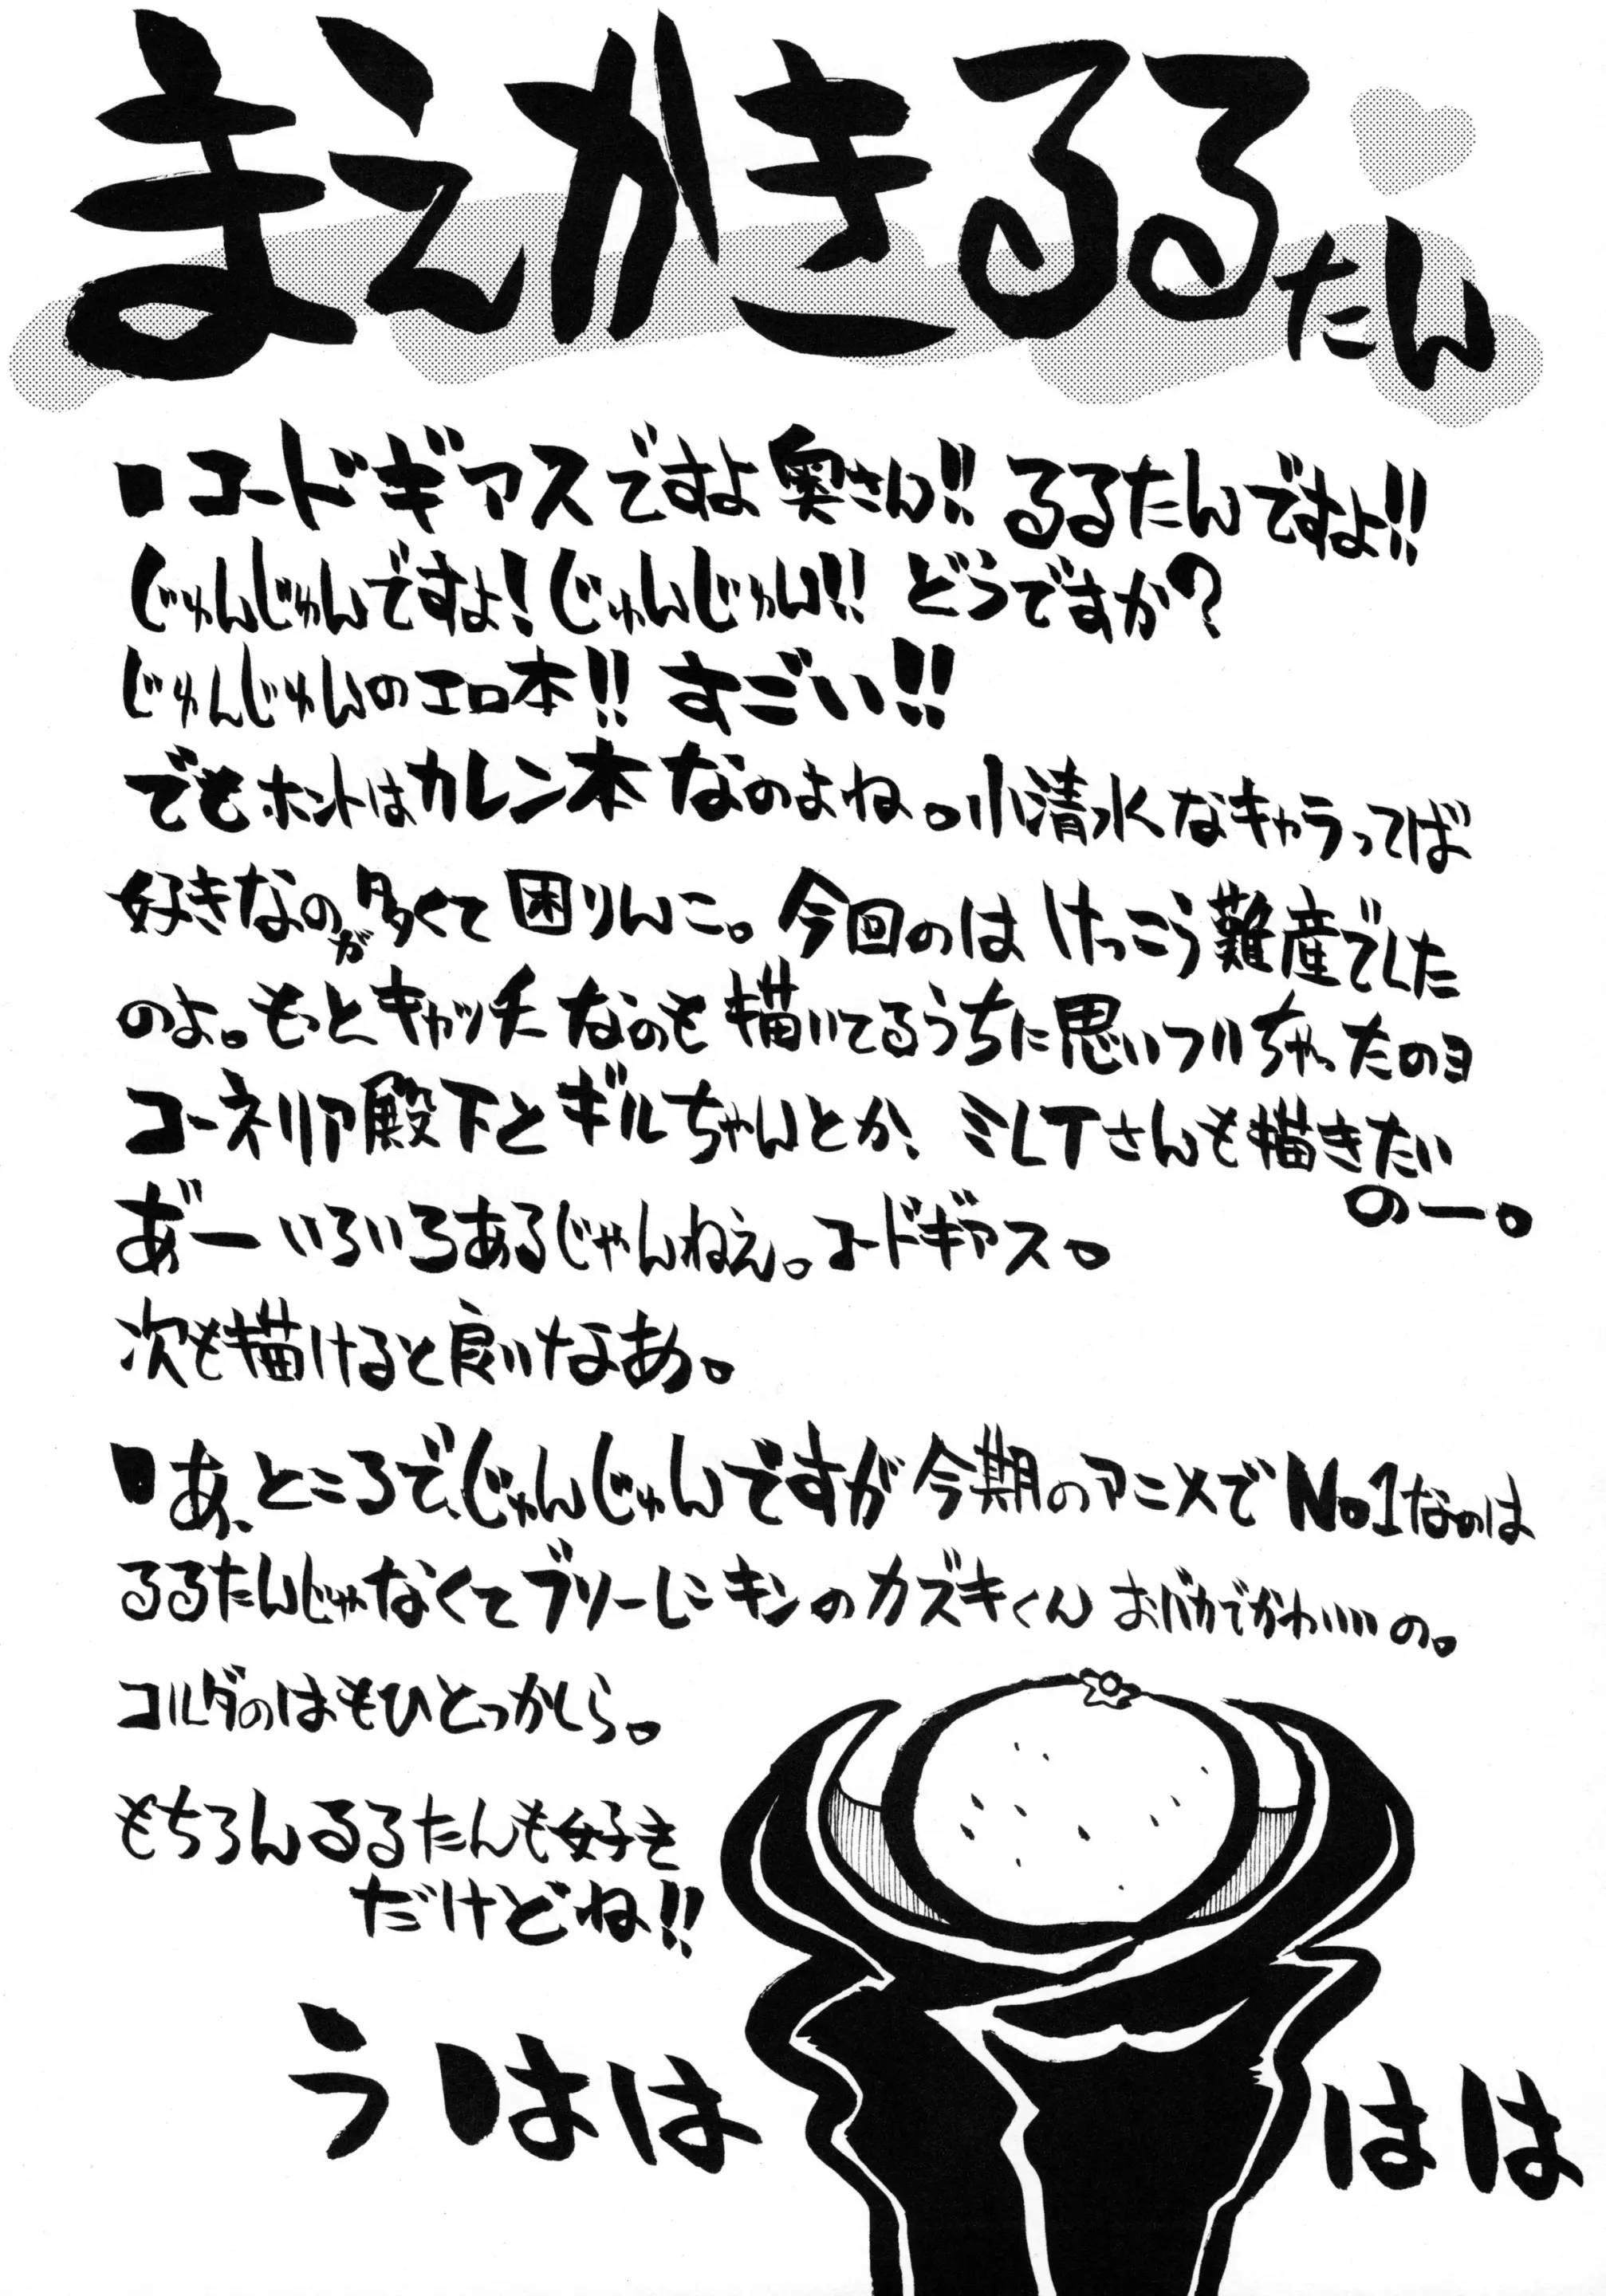 まえがきるるたん
■コードギアスですよ奥さん!!るるたんですよ!!
じゅんじゅんですよ!じゅんじゅん!!どうですか?
じゅんじゅんのエロ本!!すごい!!
でもホントはカレン本なのよね。小清水なキャラってば
好きなのが多くて困りんこ。今回のはけっこう難産でした
のよ。もっとキャッチなのも描いてるうちに思いついちゃったのヨ
コーネリア殿下とギルちゃんとか、ミレイさんも描きたい
のー。
あ゛ーいろいろあるじゃんねえ。コードギアス。
次も描けると良いなあ。
■あ、ところで、じゅんじゅんですが今期のアニメでNo1なのは
るるたんじゃなくてブリーレニキンのカズキくん おバカでかわいいの。
コルダのはもひとつかしら。
もちろんるるたんも好き
だけどね!!
うははははは